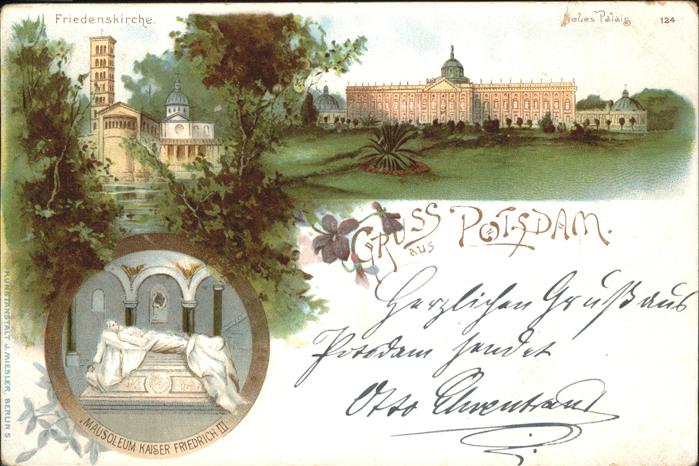 Friedenskirche.
Neues Palais
124
GRUSS
aus
POTSDAM.
Herzlichen Gruß aus
Potsdam sendet
Otto
MAUSOLEUM KAISER FRIEDRICH III
KUNSTANSTALT J. MIESLER, BERLIN S.